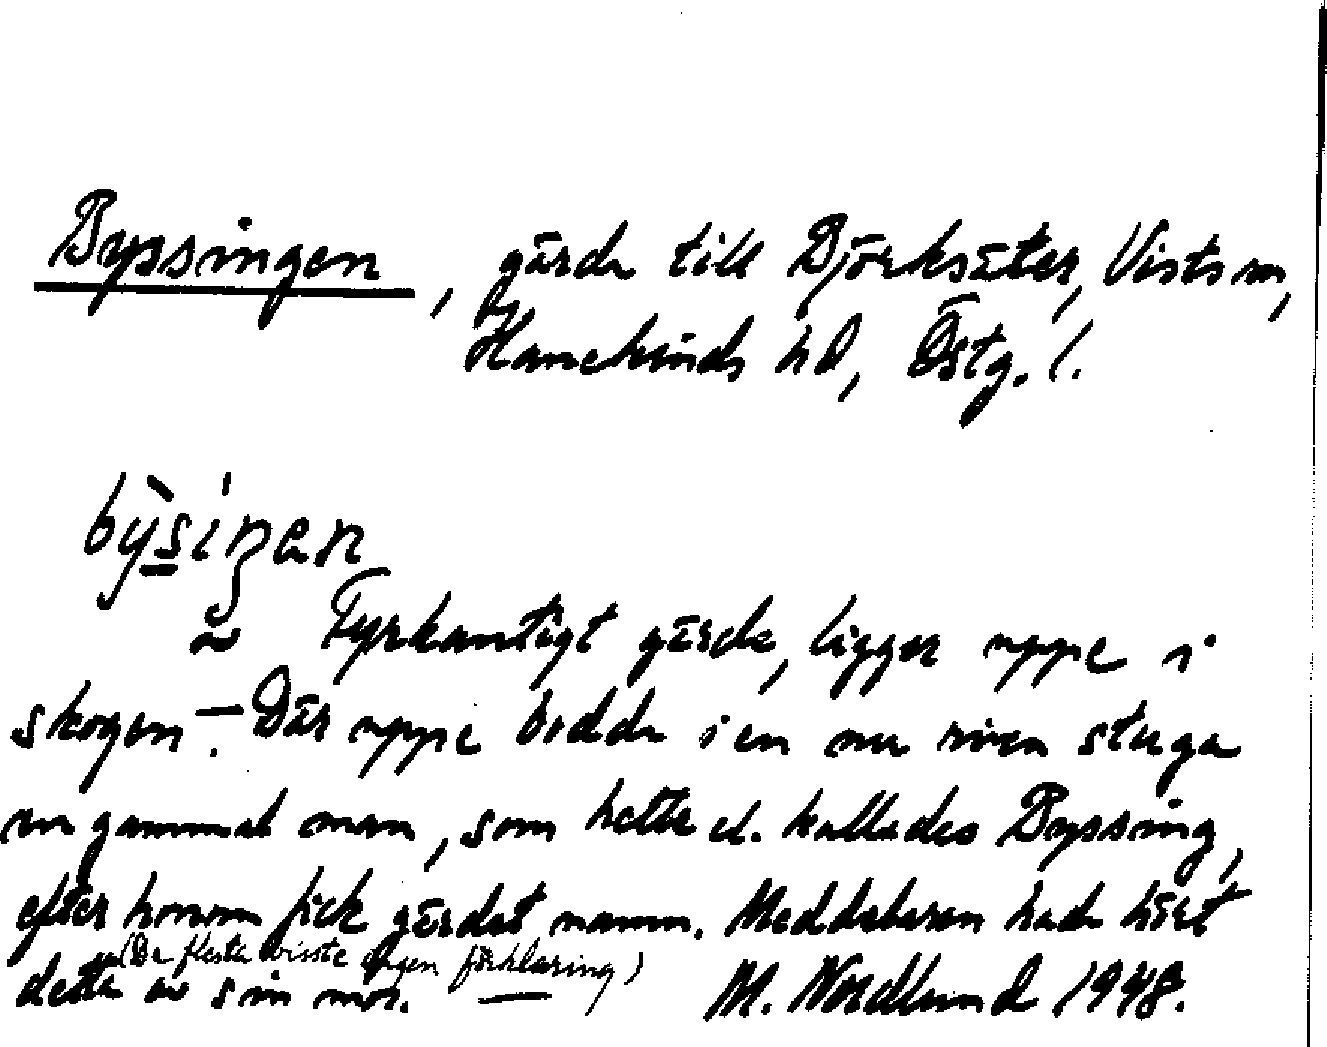 Byssingen, gärde till Björksäter, Vists sn,
Hanekinds hd, Östg. l.
bỳsiŋen
Fyrkantigt gärde, ligger uppe i
skogen. – Där uppe bodde i en nu riven stuga
en gammal man, som hette el. kallades Byssing,
efter honom fick gärdet namn. Meddelaren hade hört
(De flesta visste ingen förklaring)
detta av sin mor. — M. Nordlund 1948.